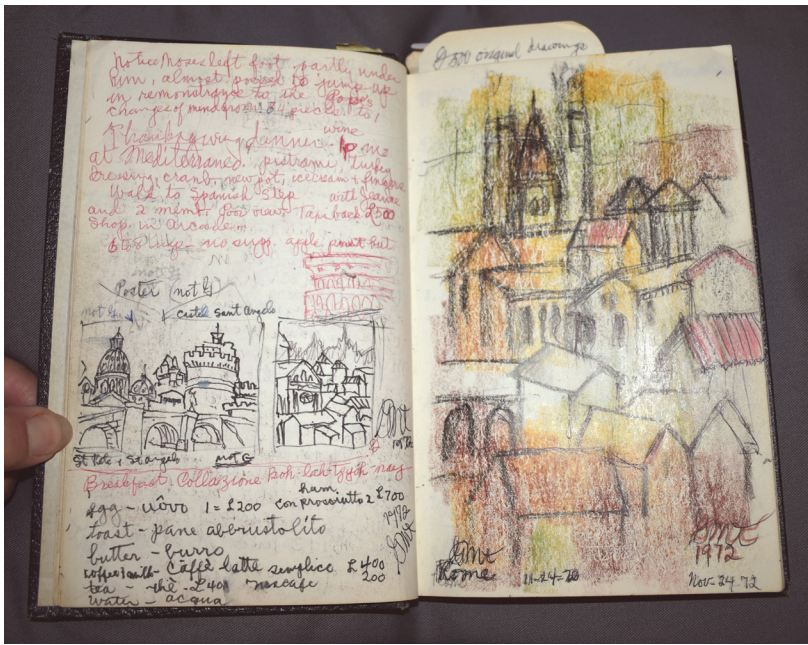 notice Moses left foot partly under
him, almost poised to jump up
in remonstrance to the Pope's
change of mind from 34 pieces to 1
Thanksgiving dinner - wine
at Mediterraneo. pistrami, turkey
dressing, cranb, new pot, icecream +
Walk to Spanish Step with Jeanne
and 2 memb. Taxi back £500
Shop in Arcade
no sugg. apple
Poster (not G)
not G
castel sant Angelo
St Pete + St angelo
not G
GMT
1972
Breakfast, Collazione koh-lah-tzyoh-nay
egg - uôvo 1 = £200
ham, con prosciutto 2 £700
toast - pane abbrustolito
butter - burro
coffee/milk - Caffè latte semplice £400
tea - thè - £40 nescafe 200
water - acqua
1972
GMT
£500 original drawings
GMT
Rome
11-24-
GMT
1972
Nov-24 72